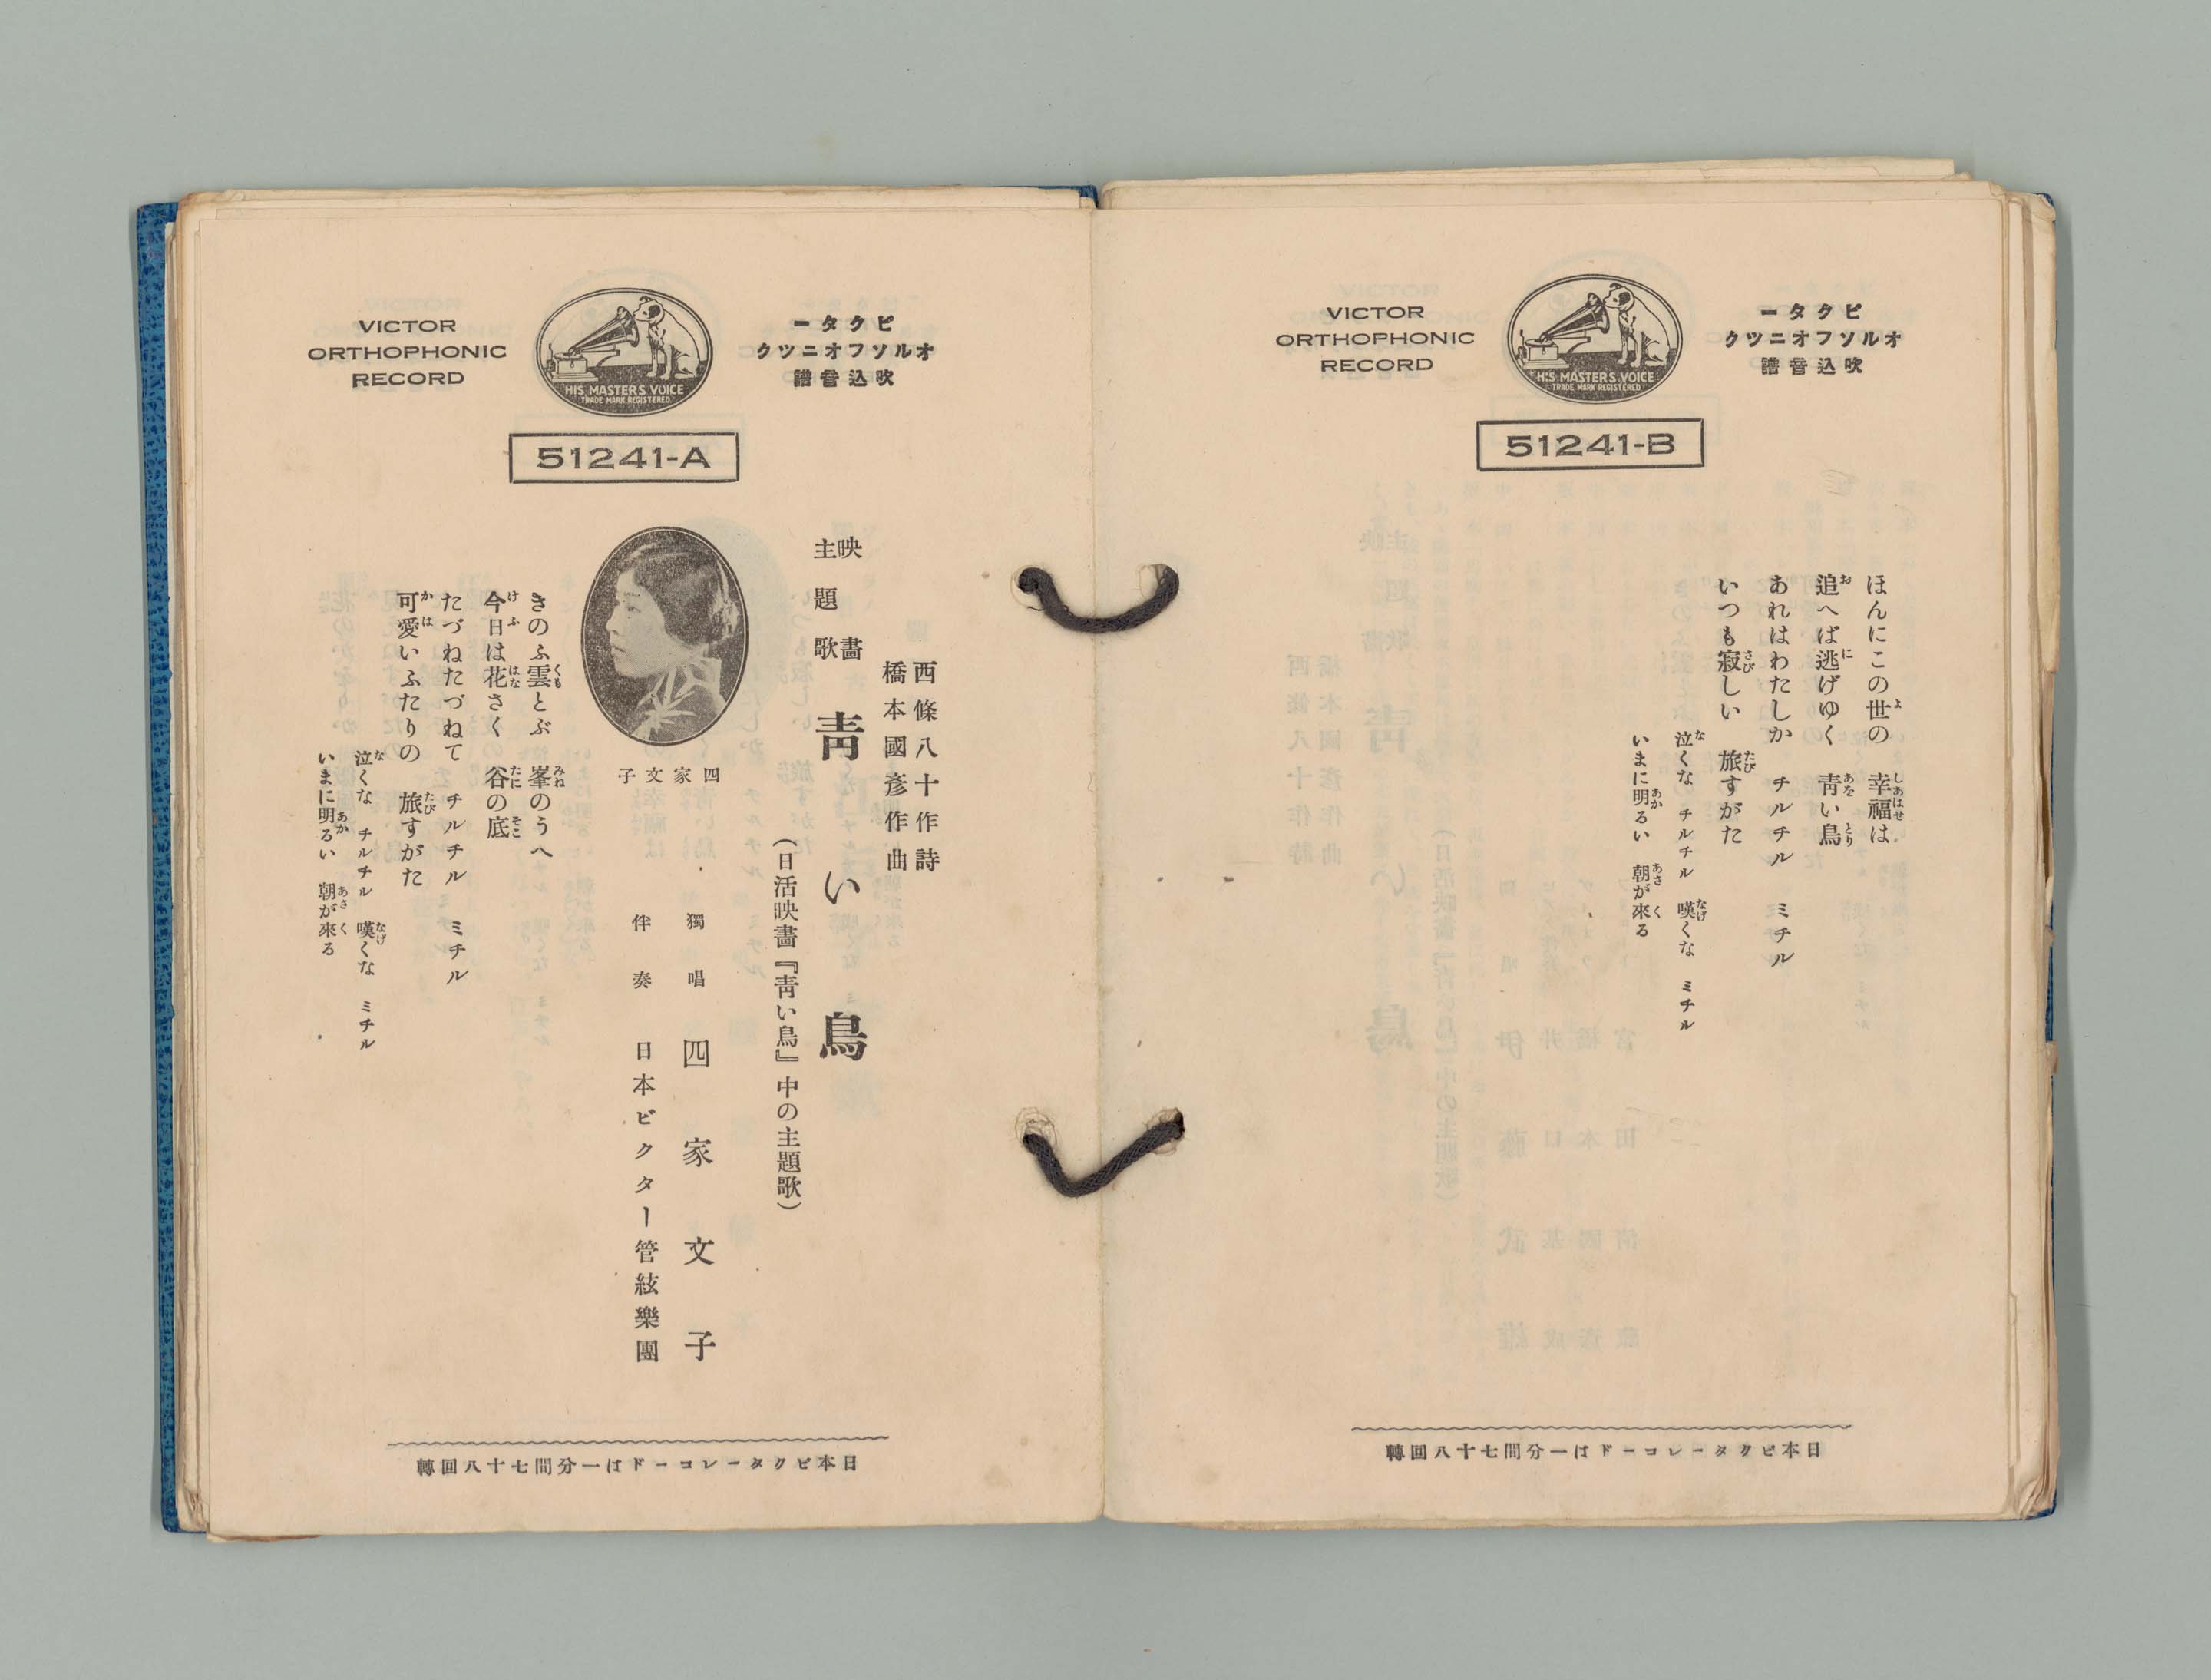 VICTOR
ORTHOPHONIC
RECORD
HIS MASTER'S VOICE
TRADE MARK REGISTERED
ビクター
オルソフオニツク
吹込音譜
51241-B
ほんにこの世の　幸福は
追へば逃げゆく　靑い鳥
あれはわたしか　チルチル　ミチル
いつも寂しい　旅すがた
泣くな　チルチル　嘆くな　ミチル
いまに明るい　朝が來る
日本ビクターレコードは一分間七十八回轉
VICTOR
ORTHOPHONIC
RECORD
HIS MASTER'S VOICE
TRADE MARK REGISTERED
ビクター
オルソフオニツク
吹込音譜
51241-A
西條八十作詩
橋本國彥作曲
映畵
主題歌
靑い鳥
(日活映畵『靑い鳥』中の主題歌)
獨唱　四家文子
伴奏　日本ビクター管絃樂團
四家文子
きのふ雲とぶ　峯のうへ
今日は花さく　谷の底
たづねたづねて　チルチル　ミチル
可愛いふたりの　旅すがた
泣くな　チルチル　嘆くな　ミチル
いまに明るい　朝が來る
日本ビクターレコードは一分間七十八回轉